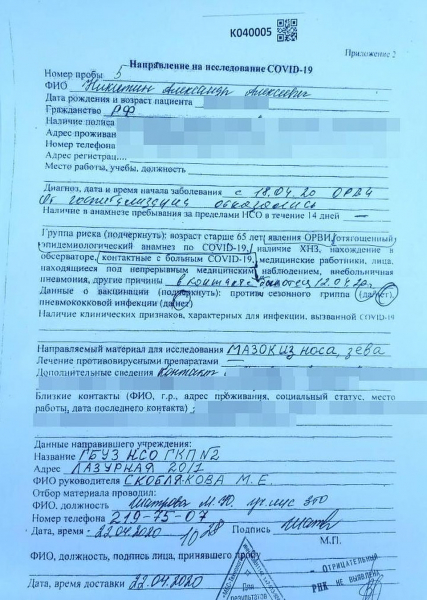 K040005
Приложение 2
Направление на исследование COVID-19
Номер пробы 5
ФИО Никитин Александр Алексеевич
Дата рождения и возраст пациента
Гражданство РФ
Наличие полиса
Адрес проживан
Номер телефона
Адрес регистрац
Место работы, учебы, должность
Диагноз, дата и время начала заболевания с 18.04.20 ОРВИ
От госпитализации отказались
Наличие в анамнезе пребывания за пределами НСО в течение 14 дней —
Группа риска (подчеркнуть): возраст старше 65 лет, явления ОРВИ, отягощенный
эпидемиологический анамнез по COVID-19, наличие ХНЗ, нахождение в
обсерваторе, контактные с больным COVID-19, медицинские работники, лица,
находящиеся под непрерывным медицинским наблюдением, внебольничная
пневмония, другие причины в контакте 12.04.20г
Данные о вакцинации (подчеркнуть): против сезонного гриппа (да/нет),
пневмококковой инфекции (да/нет)
Наличие клинических признаков, характерных для инфекции, вызванной COVID-19
Направляемый материал для исследования МАЗОК ИЗ носа, зева
Лечение противовирусными препаратами —
Дополнительные сведения Контакт
Близкие контакты (ФИО, г.р., адрес проживания, социальный статус, место
работы, дата последнего контакта)
Данные направившего учреждения:
Название ГБУЗ НСО ГКП №2
Адрес ЛАЗУРНАЯ 20/1
ФИО руководителя СКОБЛЯКОВА М. Е.
Отбор материала проводил:
ФИО, должность М. Ю.
Номер телефона 219-75-07
Дата, время 22.04.2020 10 28 Подпись
М.П.
ФИО, должность, подпись лица, принявшего пробу
ОТРИЦАТЕЛЬНЫЙ
РНК НЕ ВЫЯВЛЕН
Дата, время доставки 22.04.2020
Для
результатов